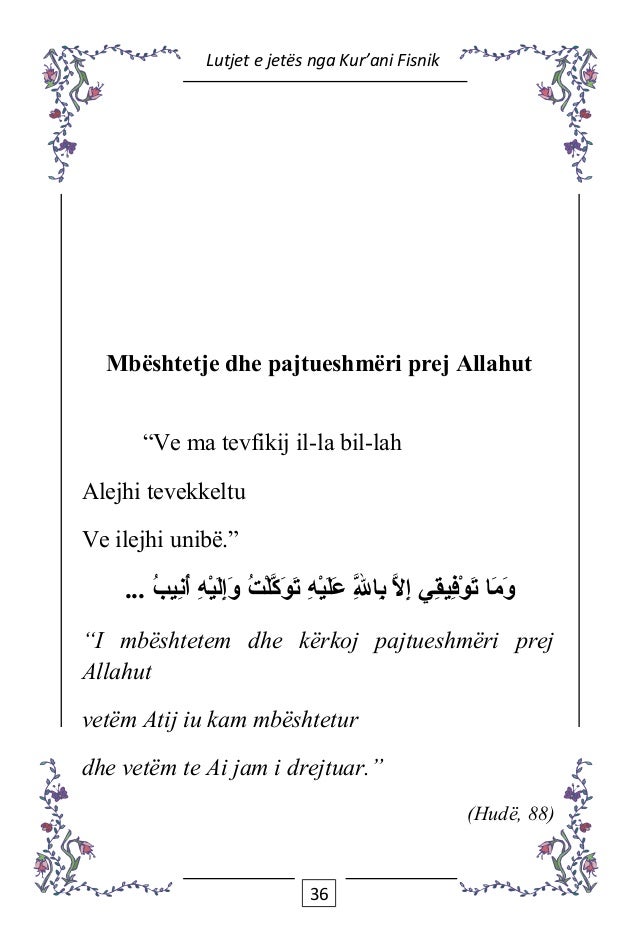 Lutjet e jetës nga Kur’ani Fisnik
Mbështetje dhe pajtueshmëri prej Allahut
“Ve ma tevfikij il-la bil-lah
Alejhi tevekkeltu
Ve ilejhi unibë.”
وَمَا تَوْفِيقِي إِلاَّ بِاللَّهِ عَلَيْهِ تَوَكَّلْتُ وَإِلَيْهِ أُنِيبُ ...
“I mbështetem dhe kërkoj pajtueshmëri prej
Allahut
vetëm Atij iu kam mbështetur
dhe vetëm te Ai jam i drejtuar.”
(Hudë, 88)
36